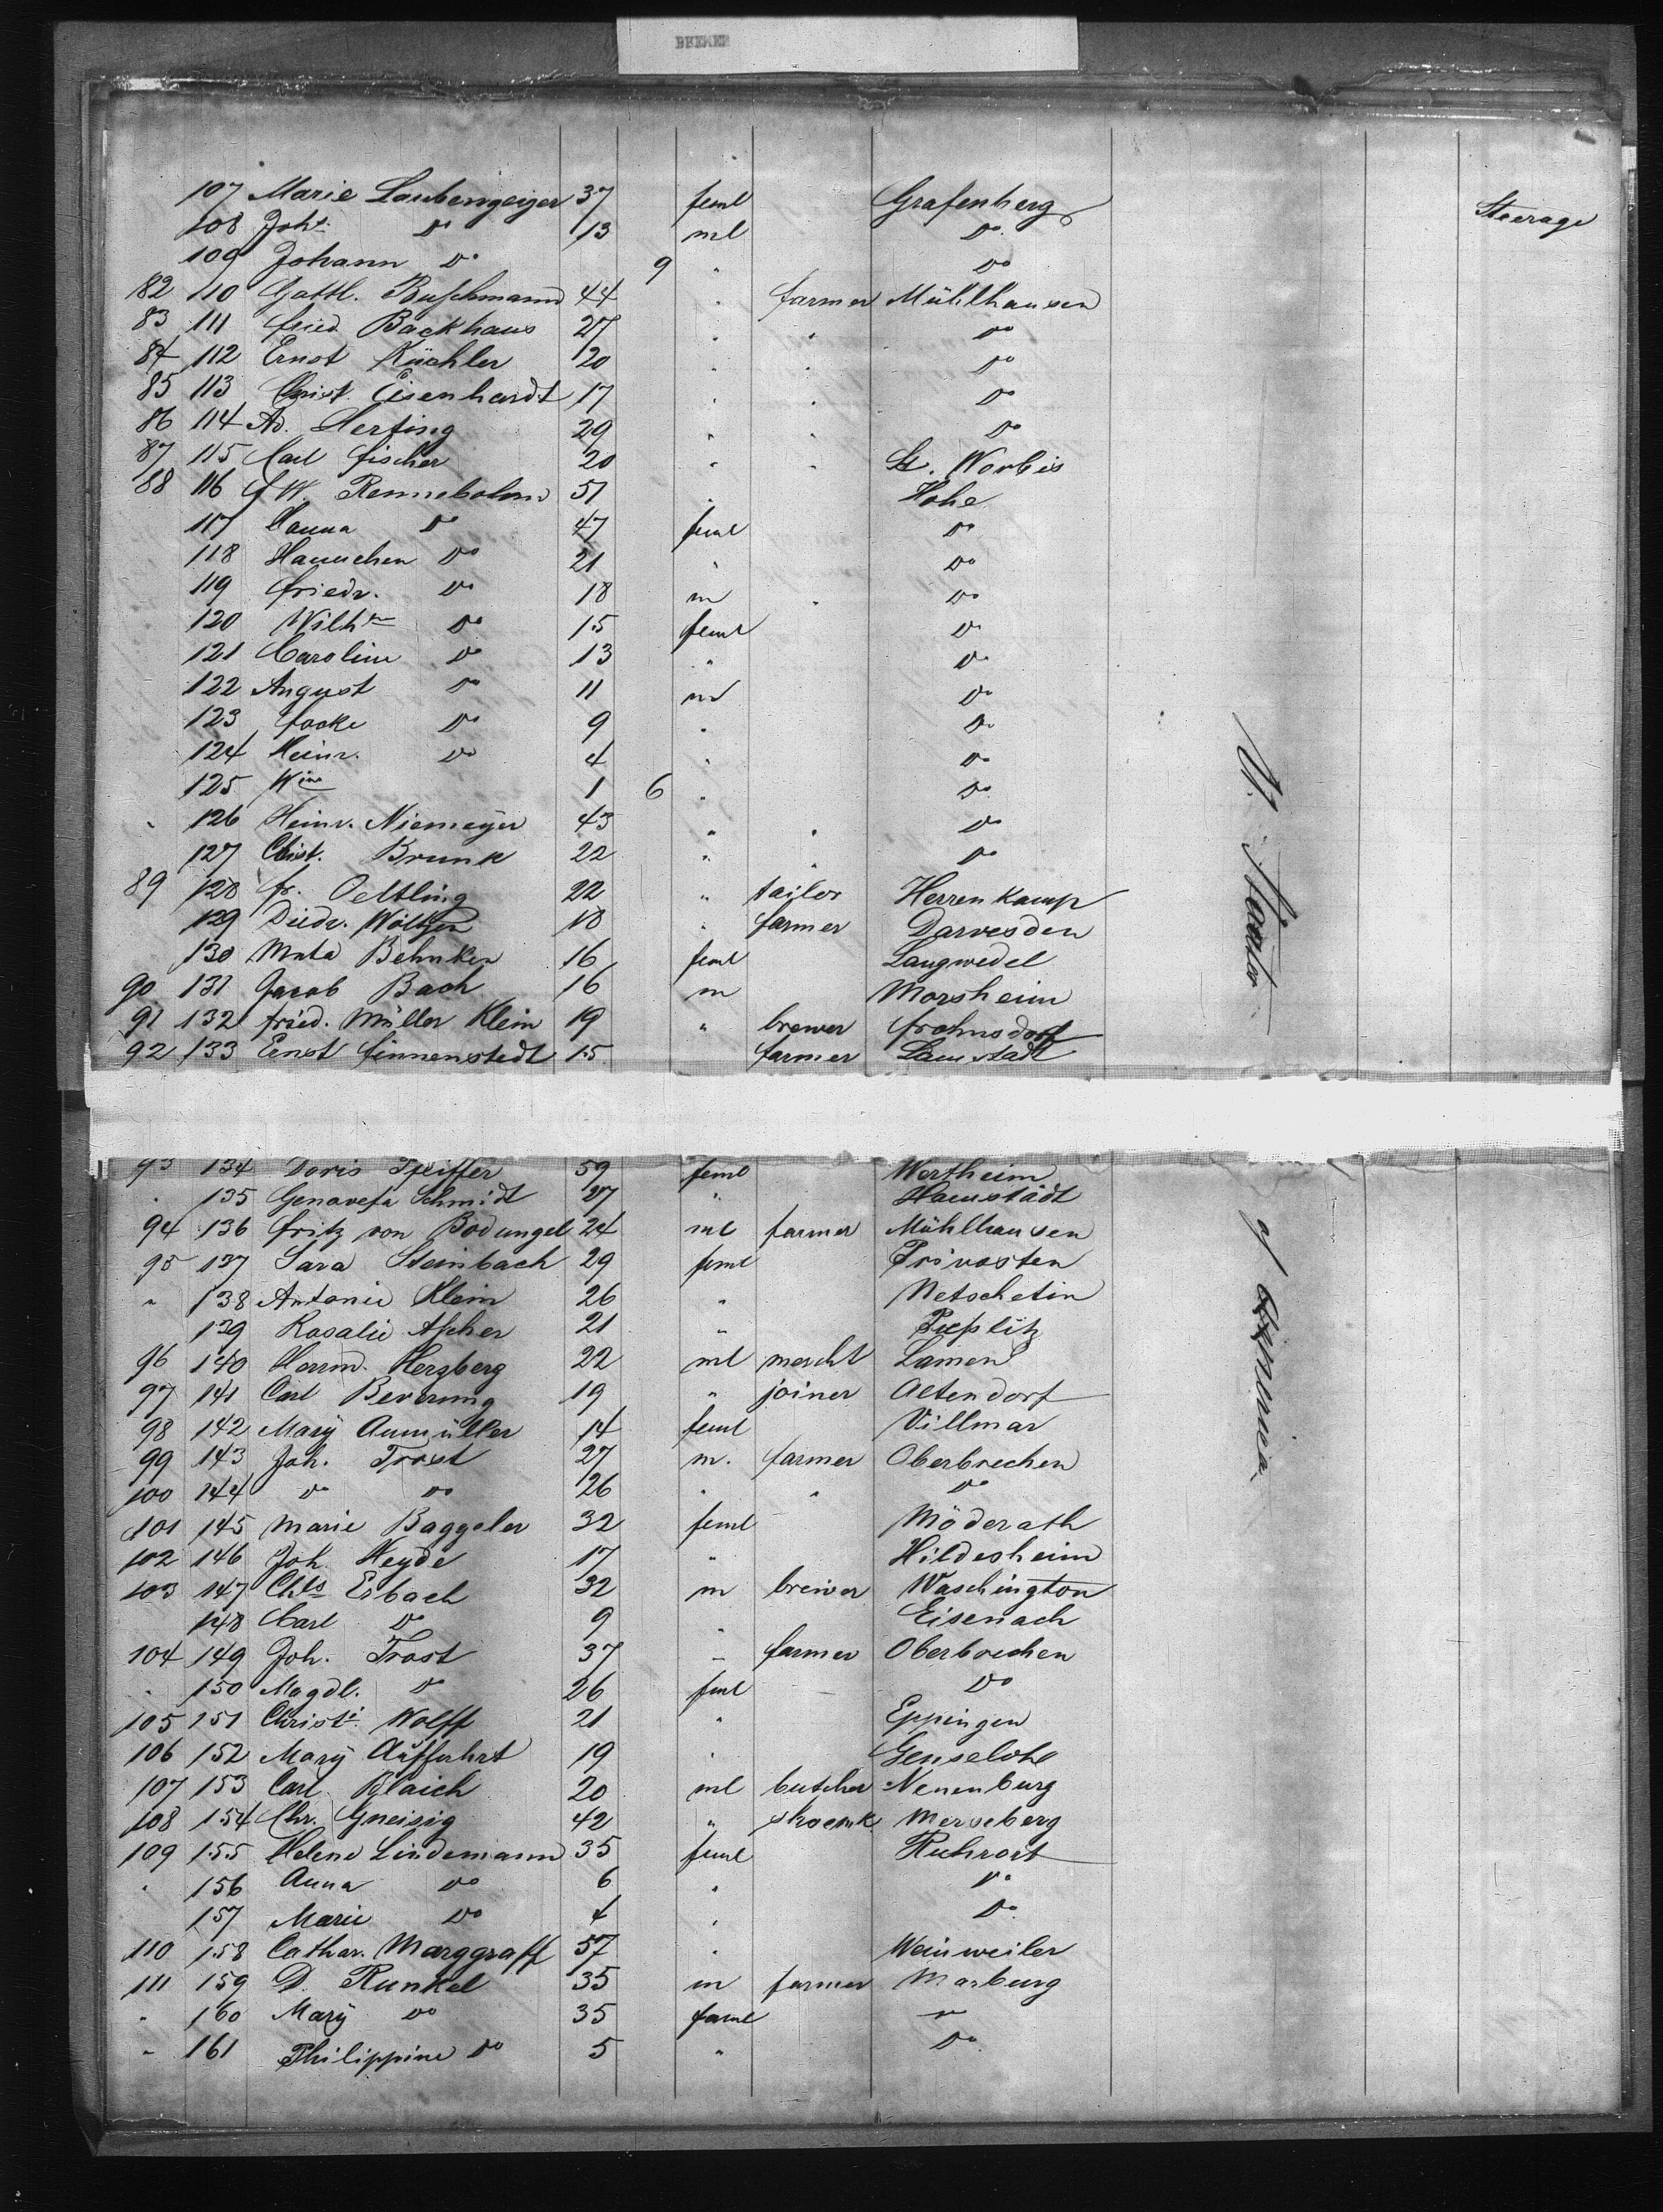 BREMEN
107 Marie Laubengeiger 37 feml Grafenberg Steerage
108 Johs. Do 13 ml Do.
109 Johann Do 9 " Do
82 110 Gottl. Buschmann 44 " farmer Mühlhausen
83 111 Fried Backhaus 27 " " Do
84 112 Ernst Küchler 20 " " Do
85 113 Christ. Eisenhardt 17 " " Do
86 114 Ad. Herting 29 " " Do
87 115 Carl Fischer 20 " " St. Worbis
88 116 F W. Rennebohm 51 " Hohe
117 Hanna Do 47 feml Do
118 Hannchen Do 21 " Do
119 Friedr. Do 18 m " Do
120 Wilhne Do 15 feml Do
121 Caroline Do 13 " Do
122 August Do 11 ml Do
123 Focke Do 9 " Do
124 Heinr. Do 4 " Do
125 Wine 1 6 " Do
" 126 Heinr. Niemeyer 43 " " Do
127 Christ. Brunk 22 " " Do
89 128 Fr. Oeltling 22 " tailor Herrenkamp
129 Diedr. Wöltjen 18 " farmer Darvesden
130 Meta Behnken 16 feml Langwedel
90 131 Jacob Bach 16 m Morsheim
91 132 Fried. Müller Klein 19 " brewer Frohnsdorf
92 133 Ernst Finnenstedt 15 farmer Lamstadt
93 134 Doris Pfeiffer 59 feml Wertheim
" 135 Genovefa Schmidt 27 " Hamstädt
94 136 Fritz von Bodungel 24 ml farmer Mühlhausen
95 137 Sara Steinbach 29 feml Privosten
" 138 Antonie Klein 26 " Netschetin
139 Rosalie Ascher 21 " Teplitz
96 140 Herrm. Herzberg 22 ml mercht Lamen
97 141 Carl Beverung 19 " joiner Altendorf
98 142 Mary Aumüller 14 feml Villmar
99 143 Joh. Trost 27 m. farmer Oberbrechen
100 144 Do Do 26 " " Do
101 145 Marie Baggeler 32 feml Möderath
102 146 Joh. Heyde 17 " Hildesheim
103 147 Chls Esbach 32 m brewer Waschington
148 Carl Do 9 " Eisenach
104 149 Joh. Trost 37 " farmer Oberbrechen
" 150 Magdl. Do 26 feml Do
105 151 Christi. Wolff 21 " Eppingen
106 152 Mary Auffahrt 19 " Genselohe
107 153 Carl Blaich 20 ml butcher Neuenburg
108 154 Chr. Gneisig 42 " shoemk. Merseberg
109 155 Helene Lindemann 35 feml Ruhrort
" 156 Anna Do 6 " Do
157 Marie Do 4 " Do
110 158 Cathar. Marggraff 57 " Weinweiler
111 159 D. Runkel 35 m farmer Marburg
" 160 Mary Do 35 feml Do
" 161 Philippine Do 5 " Do
U. States
of America